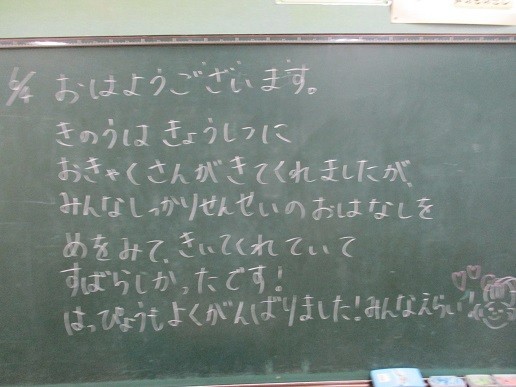 6/4 おはようございます。
きのうは きょうしつに
おきゃくさんが きてくれましたが、
みんなしっかりせんせいの おはなしを
めをみて、きいてくれていて
すばらしかったです!
はっぴょうも よくがんばりました!みんなえらい!